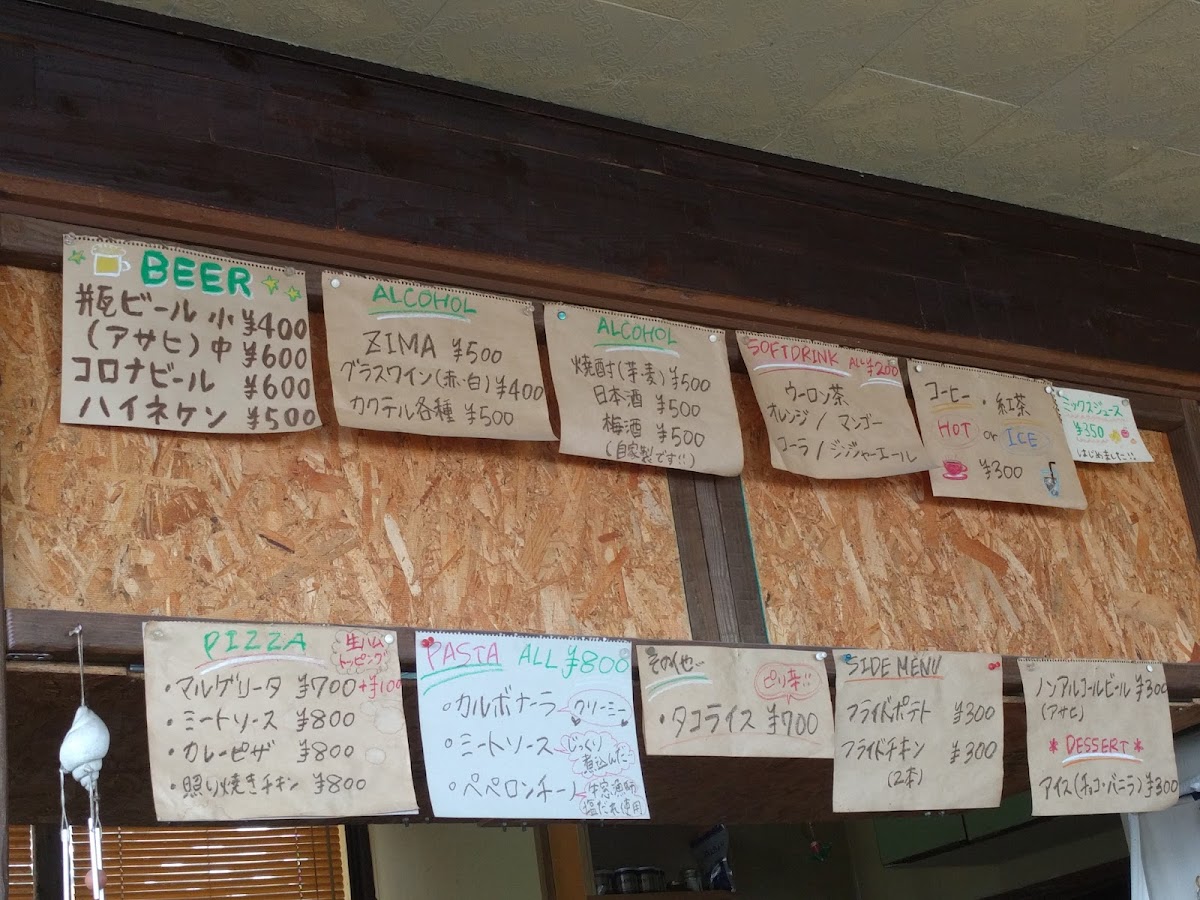 BEER
瓶ビール 小 ¥400
(アサヒ) 中 ¥600
コロナビール ¥600
ハイネケン ¥500
ALCOHOL
ZIMA ¥500
グラスワイン(赤・白) ¥400
カクテル各種 ¥500
ALCOHOL
焼酎(芋・麦) ¥500
日本酒 ¥500
梅酒 ¥500
(自家製です!!)
SOFTDRINK ALL ¥200
ウーロン茶
オレンジ / マンゴー
コーラ / ジンジャーエール
コーヒー・紅茶
HOT or ICE
¥300
ミックスジュース
¥350
はじめました!!
PIZZA
生ハム
トッピング
+¥100
・マルゲリータ ¥700
・ミートソース ¥800
・カレーピザ ¥800
・照り焼きチキン ¥800
PASTA ALL ¥800
・カルボナーラ クリーミー
・ミートソース じっくり
煮込んだ
・ペペロンチーノ
塩だれ使用
その他
ピリ辛!!
・タコライス ¥700
SIDE MENU
フライドポテト ¥300
フライドチキン ¥300
(2本)
ノンアルコールビール ¥300
(アサヒ)
* DESSERT *
アイス(チョコ・バニラ) ¥300